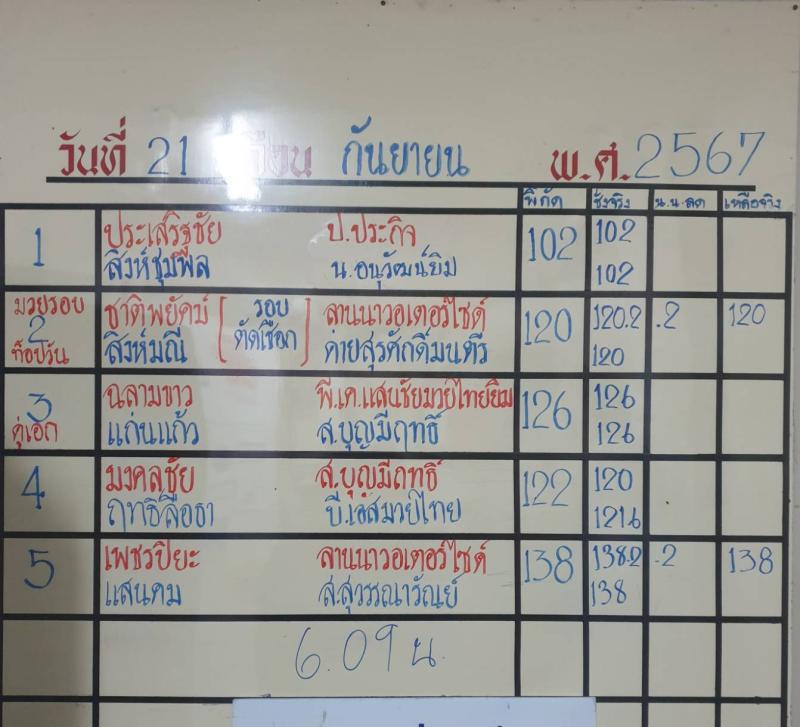 วันที่ 21 เดือน กันยายน พ.ศ. 2567
พิกัด ชั่งจริง น.น.ลด เหลือจริง
1 ประเสริฐชัย ป.ประกิจ 102 102
สิงห์ชุมพล น.อนุวัฒน์ยิม 102
มวยรอบ ชาติพยัคฆ์ [รอบ ลานนาวอเตอร์ไซด์ 120 120.2 .2 120
2
ท็อปวัน สิงห์มณี ตัดเชือก] ค่ายสุรศักดิ์มนตรี 120
3 ฉลามขาว พี.เค.แสนชัยมวยไทยยิม 126 126
คู่เอก แก่นแก้ว ส.บุญมีฤทธิ์ 126
4 มงคลชัย ส.บุญมีฤทธิ์ 122 120
ฤทธิ์ลือชา บี.เอสมวยไทย 121.6
5 เพชรปิยะ ลานนาวอเตอร์ไซด์ 138 138.2 .2 138
แสนคม ส.สุวรรณาวัณย์ 138
6.09 น.